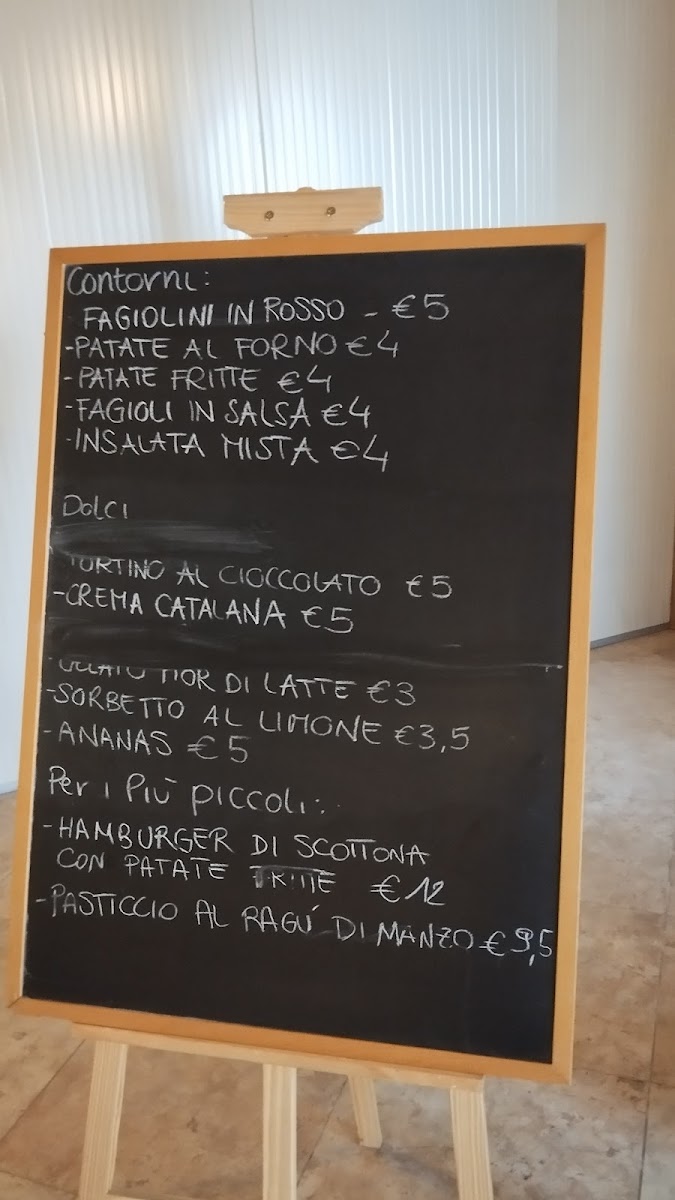 Contorni:
FAGIOLINI IN ROSSO - €5
-PATATE AL FORNO €4
-PATATE FRITTE €4
-FAGIOLI IN SALSA €4
-INSALATA MISTA €4
Dolci
TORTINO AL CIOCCOLATO €5
-CREMA CATALANA €5
-GELATO FIOR DI LATTE €3
-SORBETTO AL LIMONE €3,5
-ANANAS €5
Per i Più piccoli:
-HAMBURGER DI SCOTTONA
CON PATATE FRITTE €12
-PASTICCIO AL RAGÚ DI MANZO €9,5